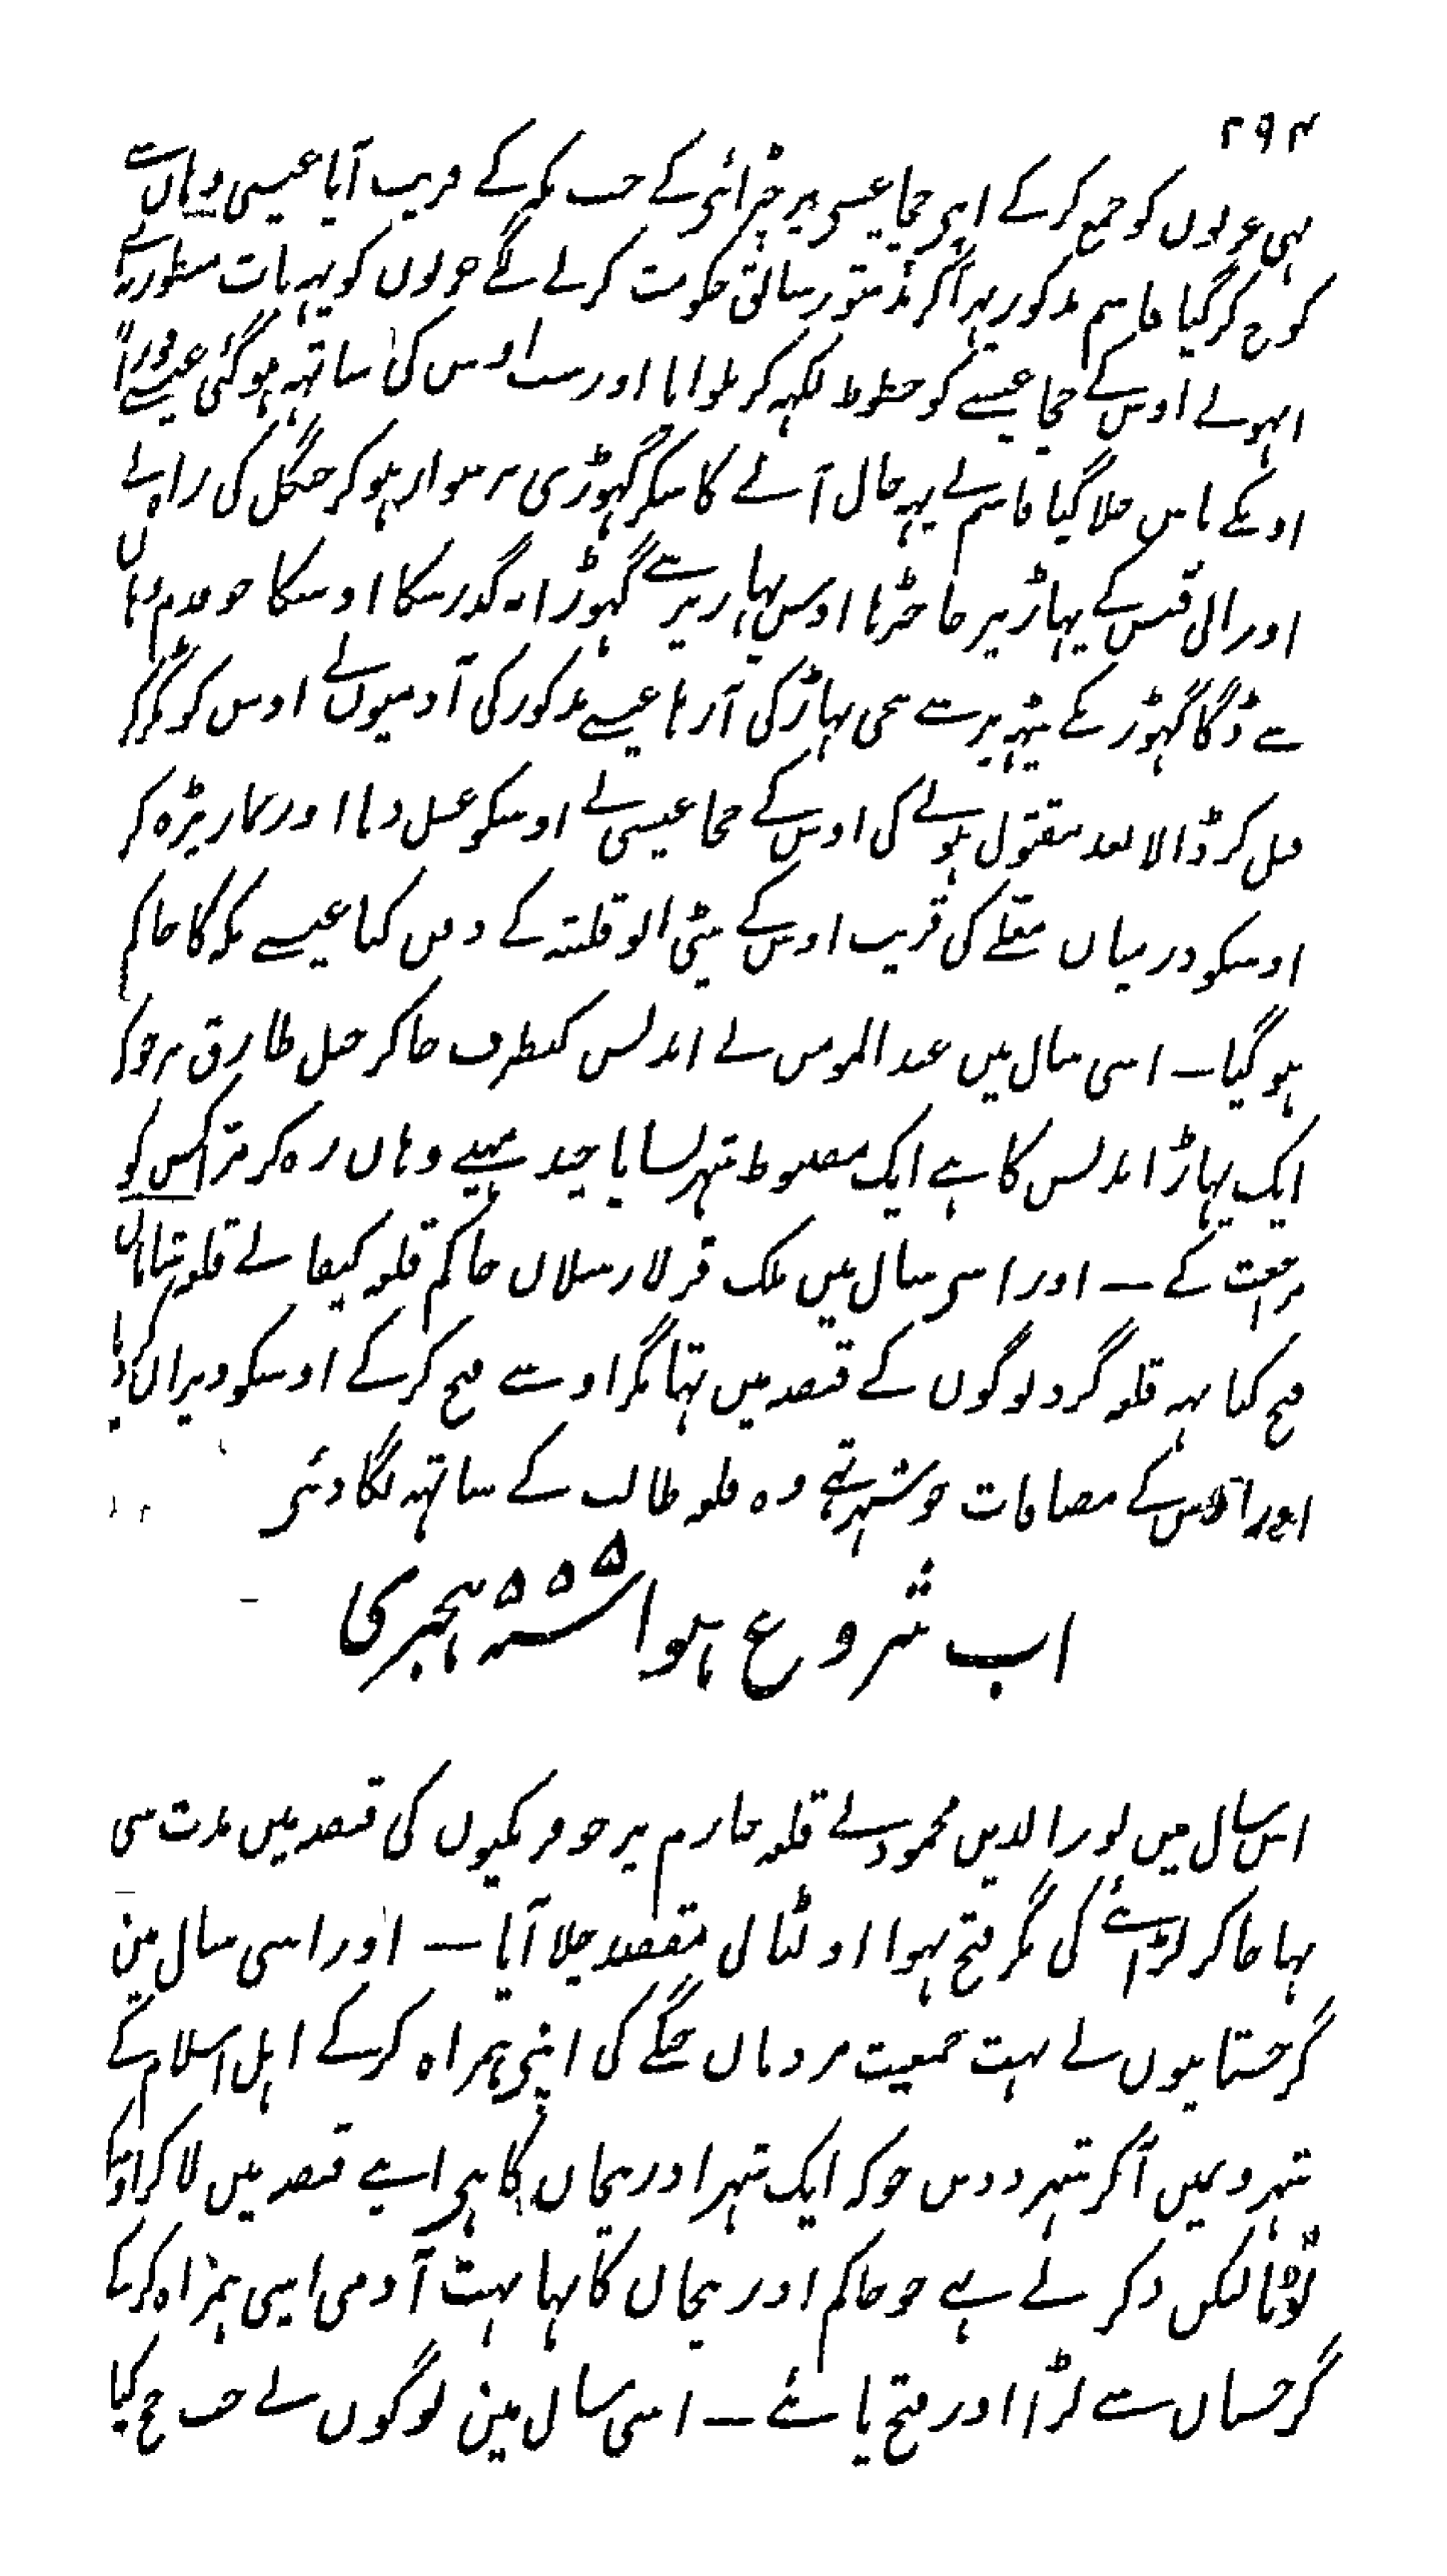 ۲۹۴
بھی عربوں کو جمع کر کے اپنی چچا عیسی پر چڑائی کے جب مکہ کے قریب آیا عیسی وہاں سے
کوچ کر گیا قاسم مذکور پہر آکر بدستور سابق حکومت کرنے لگے عربوں کو یہہ بات منظور نہ
انہونے اوس کے چچا عیسے کو خطوط لکہہ کر بلوایا اور سب اوس کی ساتہہ ہو گئی عیسے فوراً
اونکے پاس چلا گیا قاسم نے یہہ حال آنے کا سنکر گہوڑی پر سوار ہو کر جنگل کی راہ لے
اور ابی قبیس کے پہاڑ پر جا چڑہا اوس پہاڑ پر سے گہوڑا نہ گذر سکا اوسکا جو قدم وہاں
سے ڈگا گہوڑے کے پیٹہہ پر سے نیچی پہاڑ کی آرہا عیسے مذکور کی آدمیوں نے اوس کو پکڑ کر
قتل کر ڈالا بعد مقتول ہونے کی اوس کے چچا عیسی نے اوسکو غسل دیا اور نماز پڑہ کر
اوسکو درمیان معلے کی قریب اوس کے بیٹی ابو فلیتہ کے دفن کیا عیسے مکہ کا حاکم
ہو گیا ــ اسی سال میں عبد المومن نے اندلس کیطرف جا کر جبل طارق پر جو کہ
ایک پہاڑ اندلس کا ہے ایک مضبوط شہر بسایا چند مہینے وہاں رہ کر مراکش کو
مرجعت کے ــ اور اسی سال میں ملک قرلا رسلان حاکم قلعہ کیفا نے قلعہ شاتان
فتح کیا یہہ قلعہ گرد لوگوں کے قبضہ میں تہا مگر اوسے فتح کر کے اوسکو ویران کر دیا
اور اوس کے مضافات جو شہر تہے وہ قلعہ طالب کے ساتہہ لگا دئی
اب شروع ہوا ۵۵۵ سنہ ہجری
اس سال میں نور الدین محمود نے قلعہ حارم پر جو فرنگیوں کی قبضہ میں مدت سی
تہا جا کر لڑائے کی مگر فتح نہوا او لٹا بے مقصد چلا آیا ــ اور اسی سال مین
گرجستانیوں نے بہت جمعیت مردمان جنگے کی اپنی ہمراہ کر کے اہل اسلام کے
شہرونمیں آکر شہر دوین جو کہ ایک شہر ادربیجان کا ہی اپنے قبضہ میں لا کر اوسکو
لوٹا لیکن دکر نے ہے جو حاکم ادربیجان کا تہا بہت آدمی اپنی ہمراہ کر کے
گرجستان سے لڑا اور فتح پائے ــ اسی سال مین لوگوں نے جب حج کیا